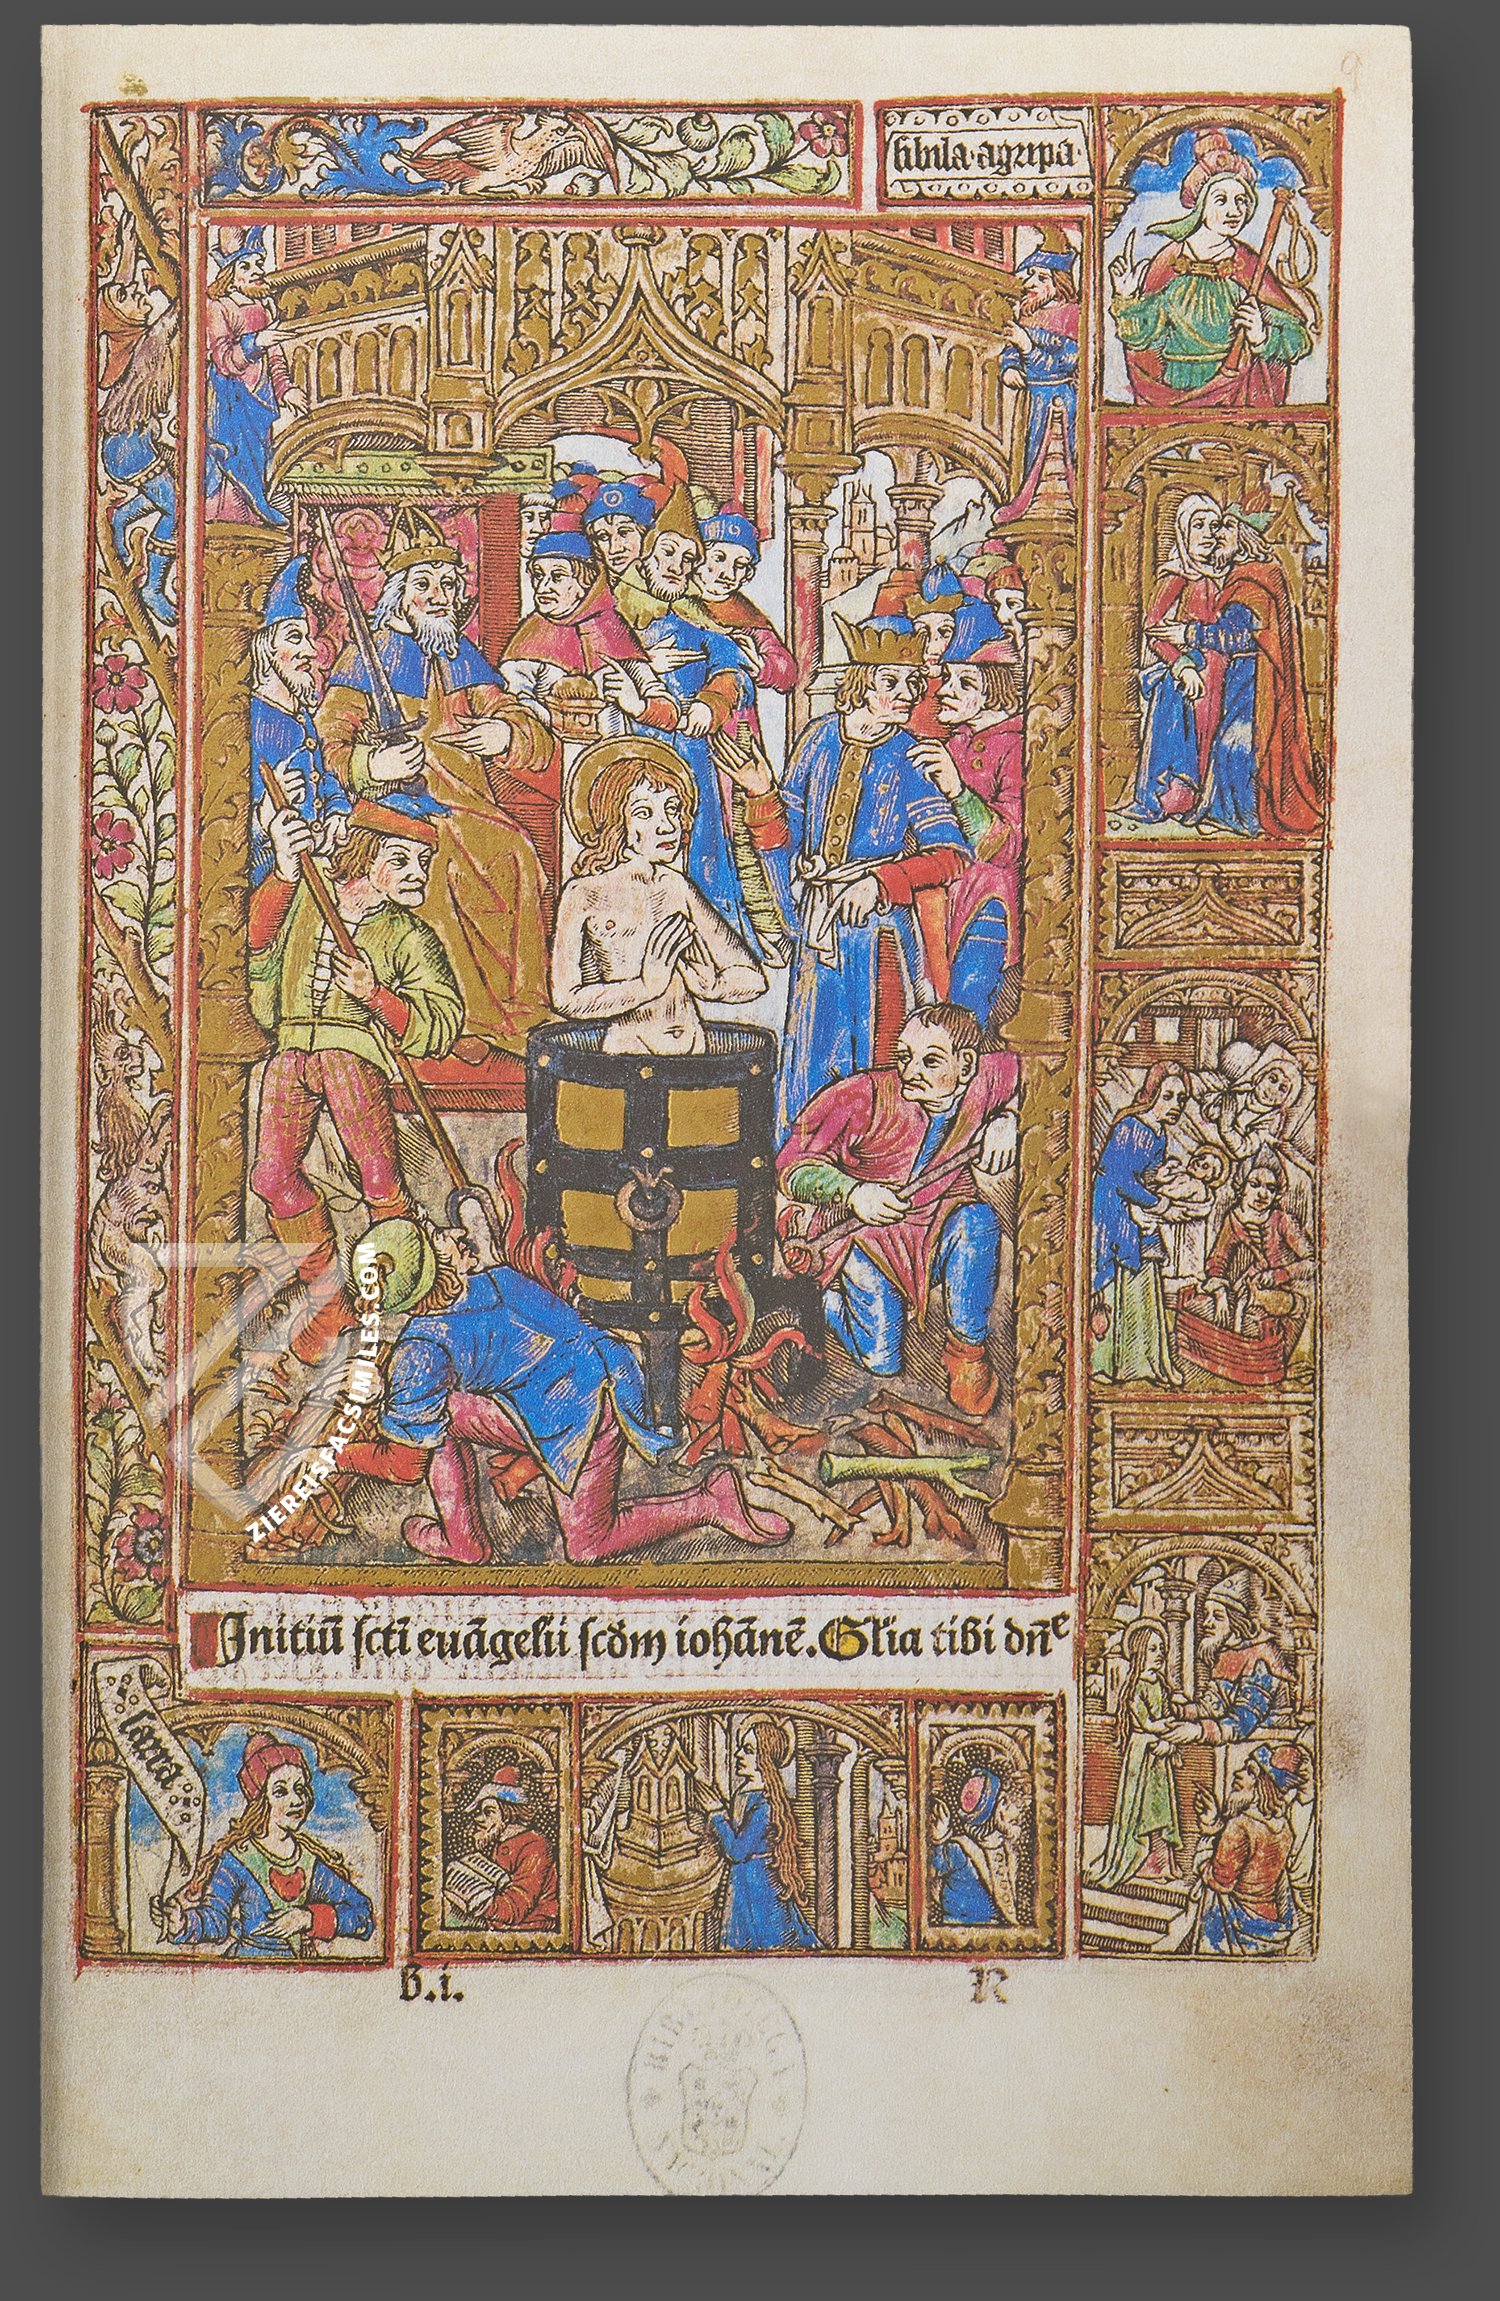 sibila·agripa·
Jnitiū sctī euāgelii scd̄m iohānē. Gl̄ia tibi dn̄e
b.i.
N
ZIEREISFACSIMILES.COM